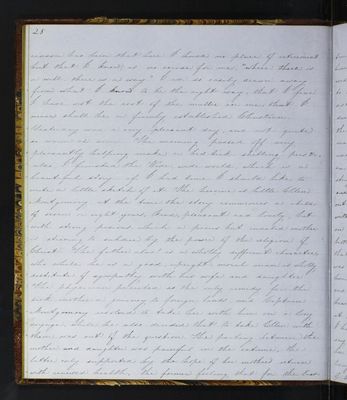 28
reason has been that here I have no place of retirement
but that I know is no excuse for me, "Where there is
a will there is a way." I am so easily drawn away
from what I know to be the right way, that I fear
I have not the root of the matter in me, that I
never shall be a firmly established Christian.
Yesterday was a very pleasant day, and not quite
so warm as usual. The morning passed off very
pleasantly helping make a bed quilt
also I finished the Wide, wide world, which is a
beautiful story. If I had time I should like to
write a little sketch of it. The heroine is little Ellen
Montgomery. At the time the story commences a child
of seven or eight years, kind, pleasant and lovely, but
with strong passions which a pious but invalid mother
is striving to subdue by the power of the religion of
Christ. The father also is a wholly different character,
who while he is a good upright moral man is wholly
destitute of sympathy with his wife and daughter.
The physician prescribed as the only remedy for the
sick mother a journey to foreign lands and Captain
Montgomery resolved to take her with him on a long
voyage, while he also decided that to take Ellen with
them was out of the question. The parting between the
mother and daughter was painful in the extreme, the
latter only supported by the hope of her mother's return
with renewed health, the former feeling that for the last